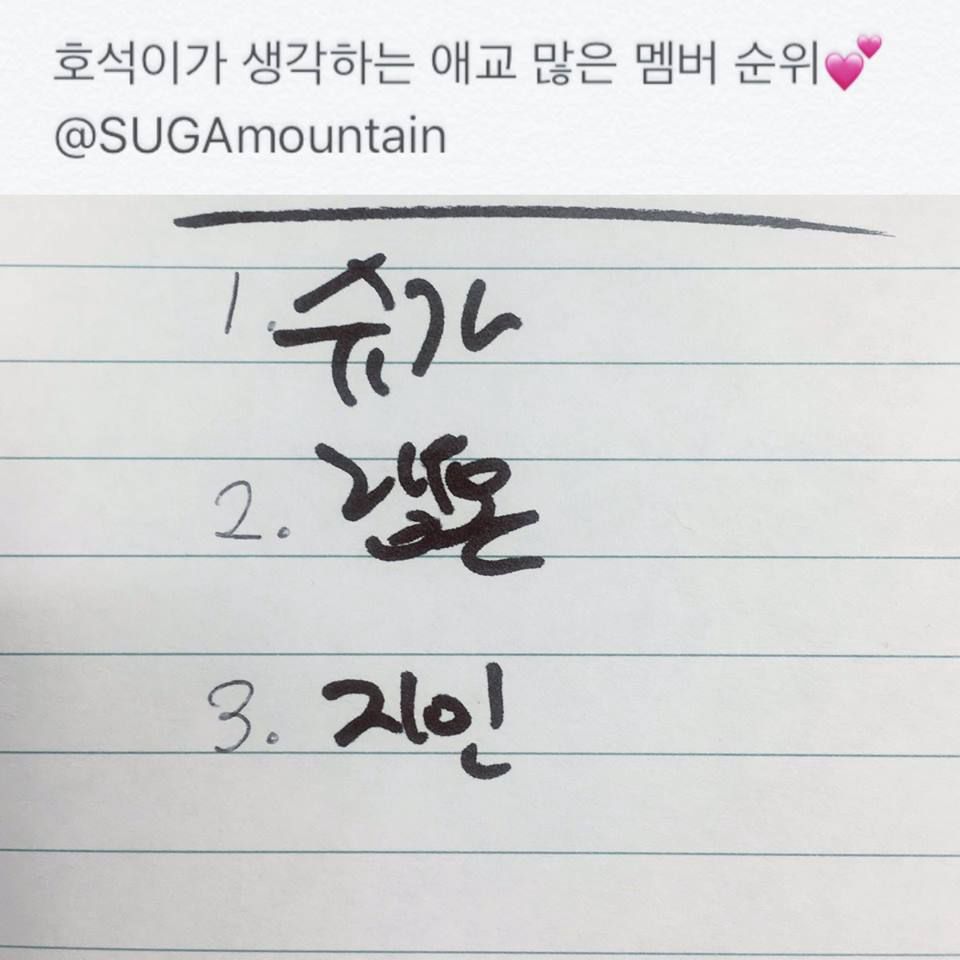 호석이가 생각하는 애교 많은 멤버 순위💕
@SUGAmountain
1. 슈가
2. 랩몬
3. 지인